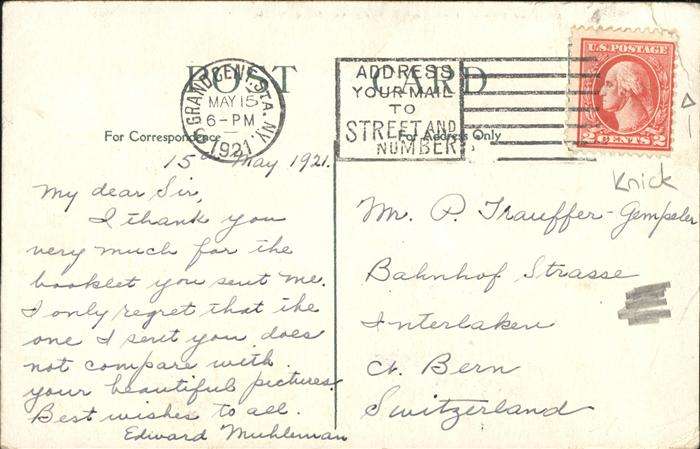 POST CARD
GRAND CENT. STA. N.Y.
MAY 15
6-PM
1921
ADDRESS
YOUR MAIL
TO
STREET AND
NUMBER
U.S. POSTAGE
2 CENTS 2
For Correspondence
For Address Only
15 May 1921.
My dear Sir,
I thank you
very much for the
booklet you sent me.
I only regret that the
one I sent you does
not compare with
your beautiful pictures.
Best wishes to all.
Edward Muhleman
Knick
Mr. P. Trauffer-Gempeler
Bahnhof Strasse
Interlaken
Ct. Bern
Switzerland